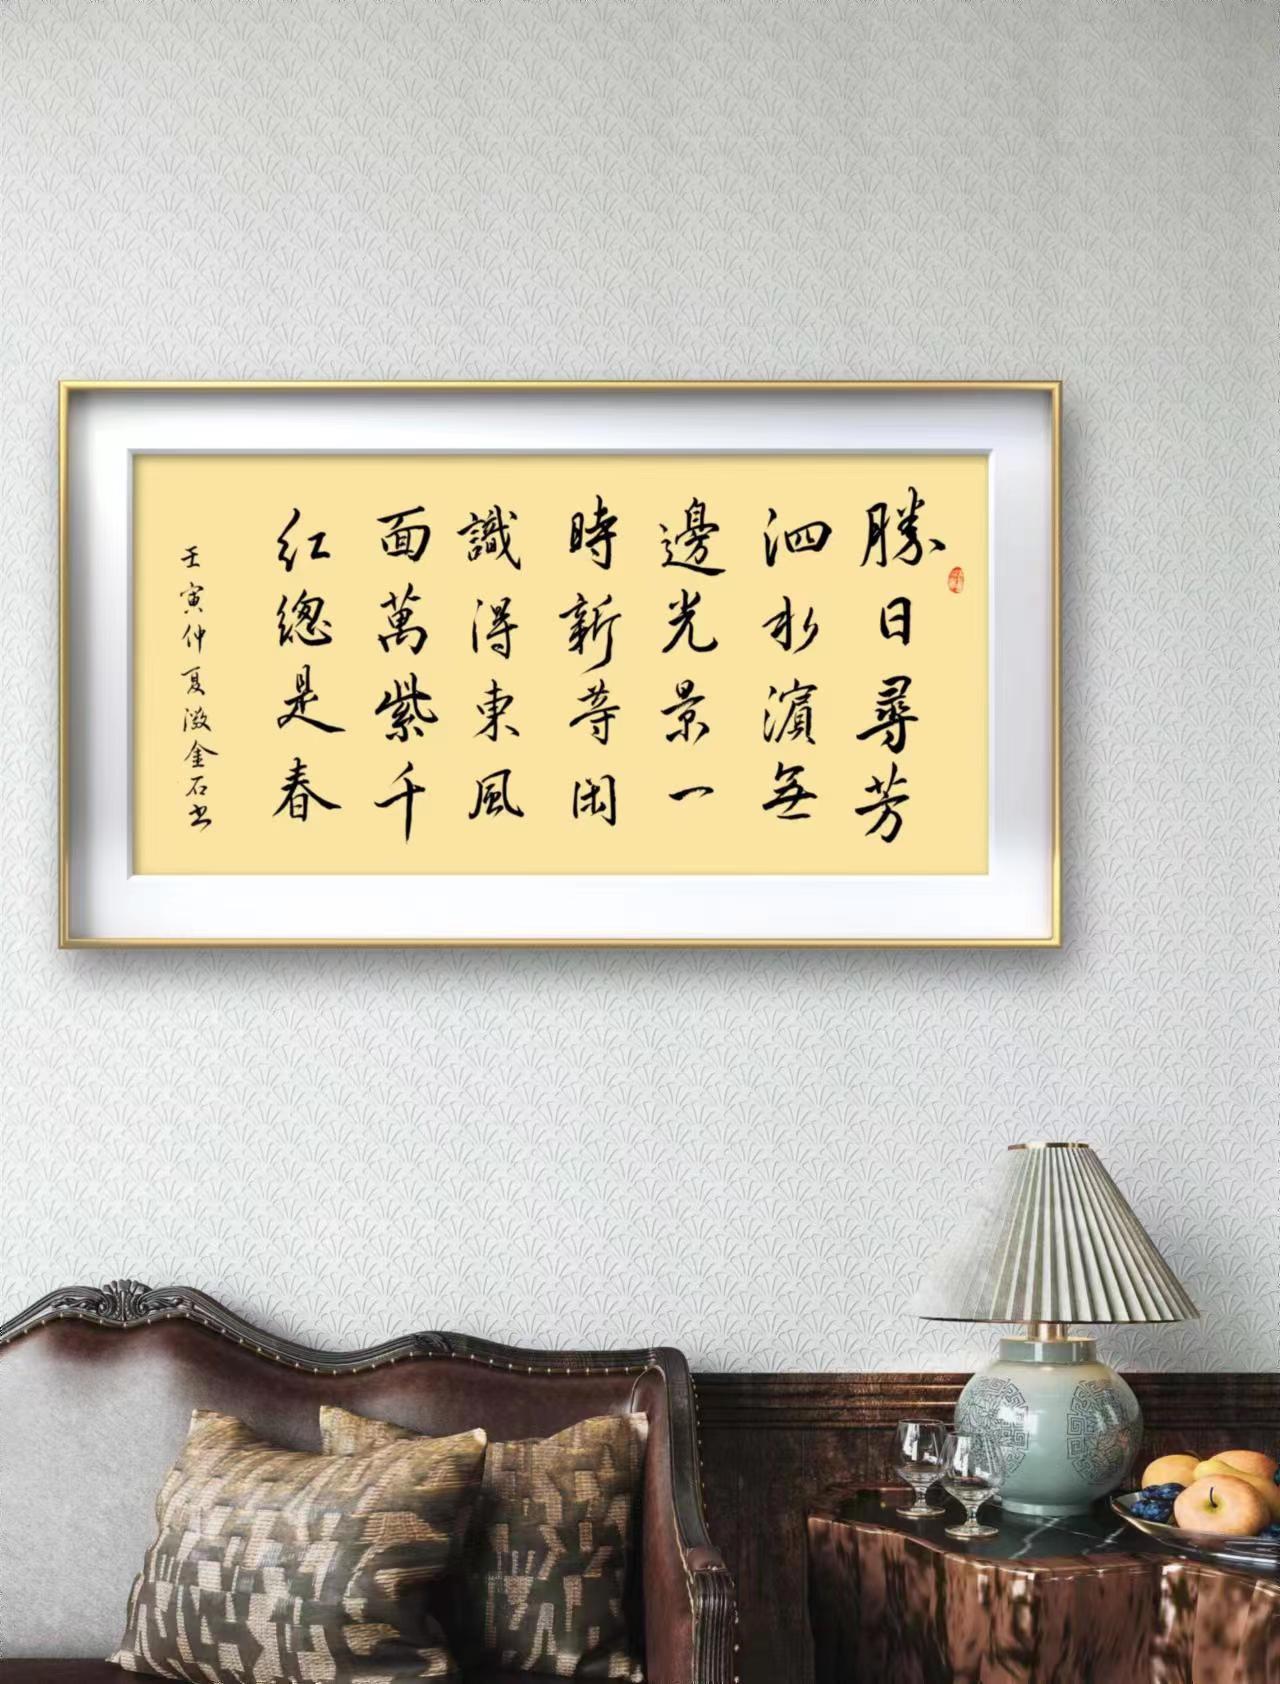 勝日尋芳
泗水濱無
邊光景一
時新等閑
識得東風
面萬紫千
紅總是春
壬寅仲夏澂金石书